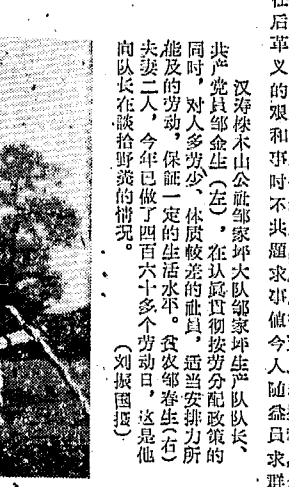 后革义的艰和时不题求事值今人随益员求群
汉寿株木山公社邹家坪大队邹家坪生产队队长、
共产党员邹金生（左），在认真贯彻按劳分配政策的
同时，对人多劳少、体质较差的社员，适当安排力所
能及的劳动，保証一定的生活水平。贫农邹春生（右）
夫妻二人，今年已做了四百六十多个劳动日，这是他
向队长在談拾野粪的情况。 （刘振国摄）